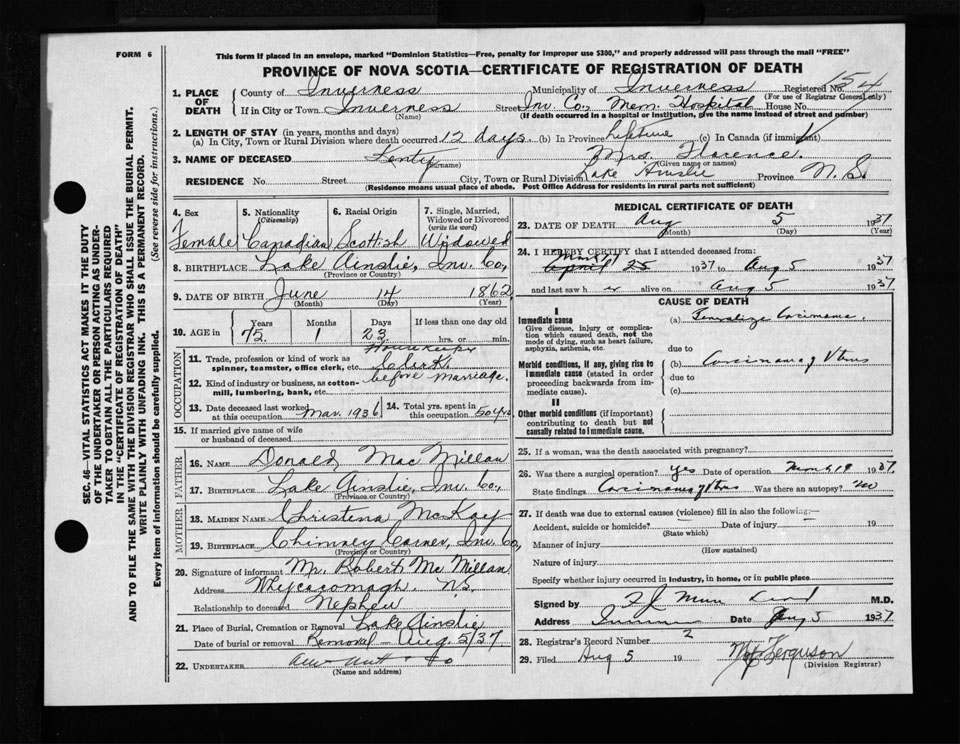 FORM 6
This form if placed in an envelope, marked "Dominion Statistics—Free, penalty for improper use $300," and properly addressed will pass through the mail "FREE"
PROVINCE OF NOVA SCOTIA—CERTIFICATE OF REGISTRATION OF DEATH
SEC. 46—VITAL STATISTICS ACT MAKES IT THE DUTY
OF THE UNDERTAKER OR PERSON ACTING AS UNDER-
TAKER TO OBTAIN ALL THE PARTICULARS REQUIRED
IN THE "CERTIFICATE OF REGISTRATION OF DEATH"
AND TO FILE THE SAME WITH THE DIVISION REGISTRAR WHO SHALL ISSUE THE BURIAL PERMIT.
WRITE PLAINLY WITH UNFADING INK. THIS IS A PERMANENT RECORD.
Every item of information should be carefully supplied. (See reverse side for instructions.)
1. PLACE OF DEATH
County of Inverness Municipality of Inverness Registered No. 154
(For use of Registrar General only)
If in City or Town Inverness Street Inv. Co. Mem. Hospital House No.
(Name) (If death occurred in a hospital or institution, give the name instead of street and number)
2. LENGTH OF STAY (in years, months and days)
(a) In City, Town or Rural Division where death occurred 12 days. (b) In Province Lifetime (c) In Canada (if immigrant)
3. NAME OF DECEASED Mrs. Florence.
(Surname) (Given name or names)
RESIDENCE No. Street City, Town or Rural Division Lake Ainslie Province N.S.
(Residence means usual place of abode. Post Office Address for residents in rural parts not sufficient)
4. Sex 5. Nationality (Citizenship) 6. Racial Origin 7. Single, Married, Widowed or Divorced (write the word)
Female Canadian Scottish Widowed
8. BIRTHPLACE Lake Ainslie, Inv. Co,
(Province or Country)
9. DATE OF BIRTH June 14 1862
(Month) (Day) (Year)
10. AGE in Years Months Days If less than one day old
75. 1 23 hrs. or min.
OCCUPATION
11. Trade, profession or kind of work as spinner, teamster, office clerk, etc. Housekeeper
Clerk
12. Kind of industry or business, as cotton-mill, lumbering, bank, etc. before marriage.
13. Date deceased last worked at this occupation Mar. 1936 14. Total yrs. spent in this occupation 50 yrs
15. If married give name of wife or husband of deceased
FATHER
16. NAME Donald Mac Millan
17. BIRTHPLACE Lake Ainslie, Inv. Co,
(Province or Country)
MOTHER
18. MAIDEN NAME Christena McKay
19. BIRTHPLACE Chimney Corner, Inv. Co,
(Province or Country)
20. Signature of informant Mr. Robert Mc Millan
Address Whycocomagh. N.S.
Relationship to deceased Nephew
21. Place of Burial, Cremation or Removal Lake Ainslie
Date of burial or removal Removal - Aug. 5/37.
22. UNDERTAKER
(Name and address)
MEDICAL CERTIFICATE OF DEATH
23. DATE OF DEATH Aug 5 1937
(Month) (Day) (Year)
24. I HEREBY CERTIFY that I attended deceased from:
April 25 1937 to Aug 5 1937
and last saw h er alive on Aug 5 1937
CAUSE OF DEATH
I
Immediate cause
Give disease, injury or complication which caused death, not the mode of dying, such as heart failure, asphyxia, asthenia, etc.
(a) Carcinoma
due to
Morbid conditions, if any, giving rise to immediate cause (stated in order proceeding backwards from immediate cause).
(b) Carcinoma of
due to
(c)
II
Other morbid conditions (if important) contributing to death but not causally related to immediate cause.
25. If a woman, was the death associated with pregnancy?
26. Was there a surgical operation? yes Date of operation 1937.
State findings Carcinoma of Was there an autopsy? no
27. If death was due to external causes (violence) fill in also the following:—
Accident, suicide or homicide? Date of injury 19
(State which)
Manner of injury
(How sustained)
Nature of injury
Specify whether injury occurred in industry, in home, or in public place
Signed by M.D.
Address Date Aug 5 1937
28. Registrar's Record Number 2
29. Filed Aug 5 19 Ferguson
(Division Registrar)